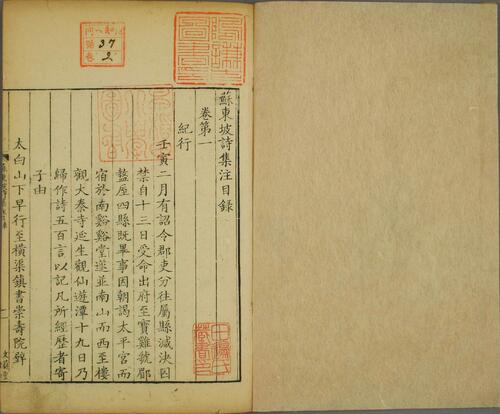 蘇東坡詩集注目録
卷第一
紀行
壬寅二月有詔令郡吏分往屬縣減決囚
禁自十三日受命出府至寶雞虢郿
盩厔四縣既畢事因朝謁太平宮而
宿於南谿谿堂遂並南山而西至樓
觀大秦寺延生觀仙遊潭十九日乃
歸作詩五百言以記凡所經歷者寄
子由
太白山下早行至橫渠鎮書崇壽院壁
37